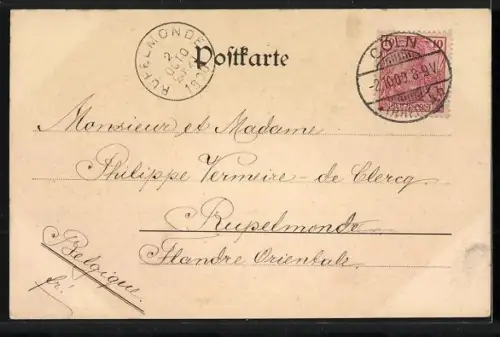 RUPELMONDE
2
OCTO
1900
Postkarte
CÖLN
10
Monsieur et Madame
Philippe Vermeire-de Clercq
Rupelmonde
Flandre Orientale.
Belgique.